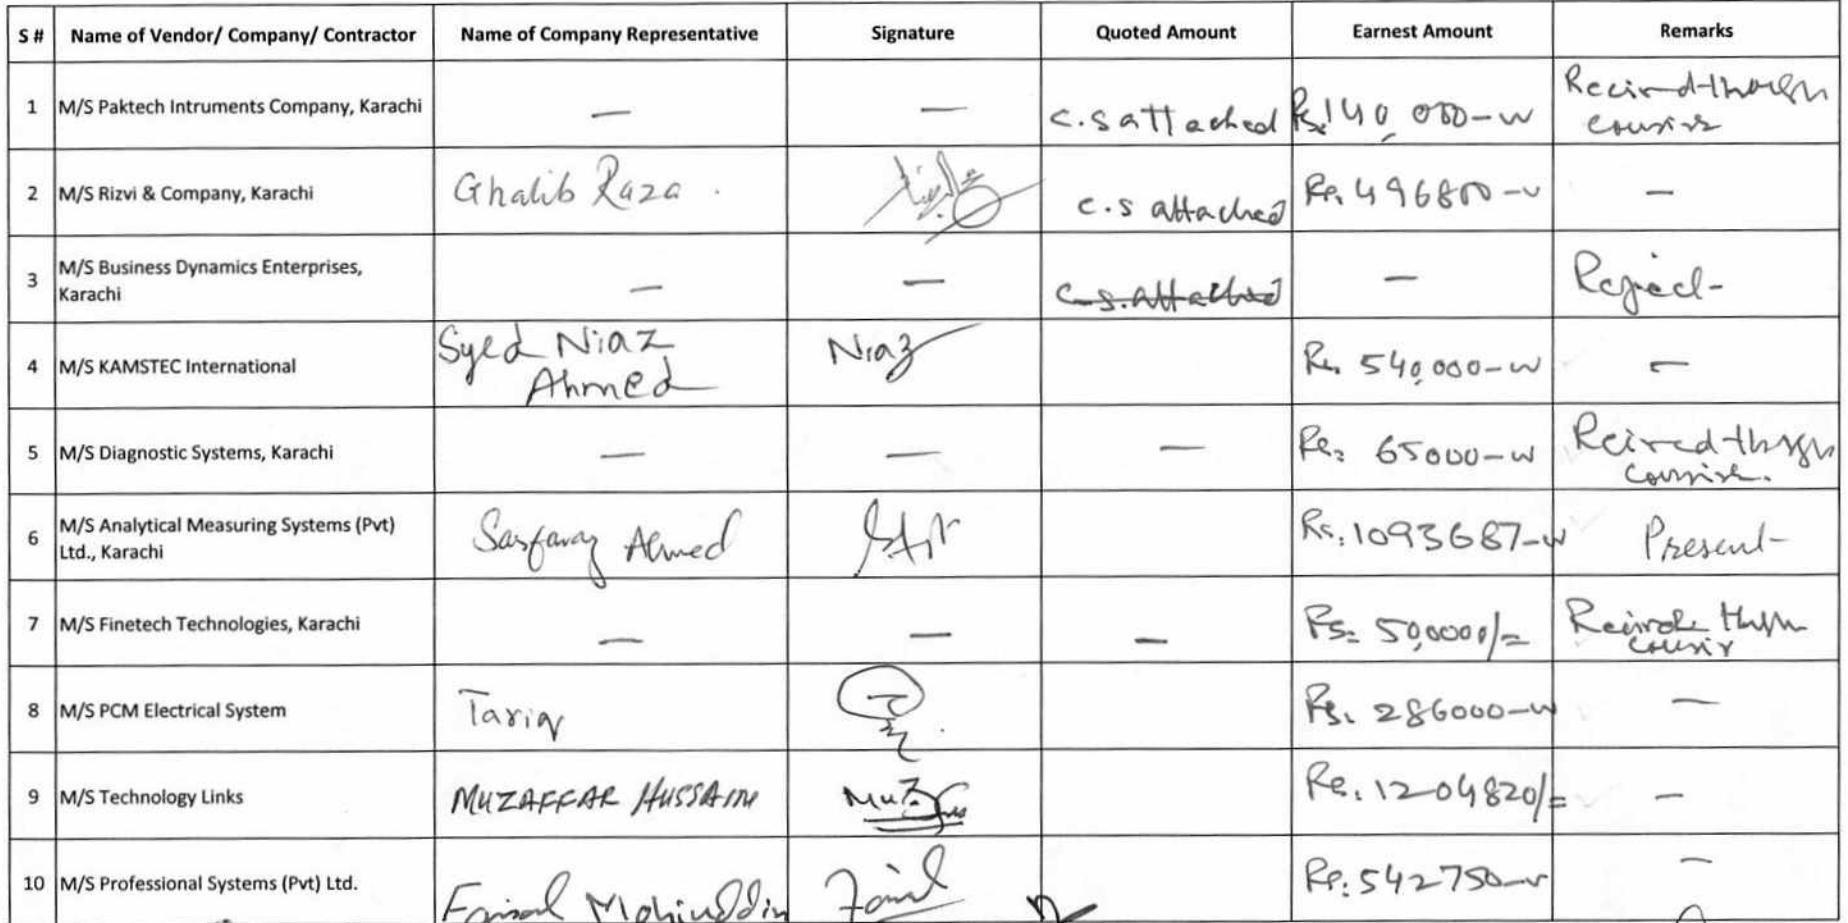 S # Name of Vendor/ Company/ Contractor Name of Company Representative Signature Quoted Amount Earnest Amount Remarks
1 M/S Paktech Intruments Company, Karachi — — c.s attached Rs. 140,000-
2 M/S Rizvi & Company, Karachi Ghalib Raza . c.s attached Rs. 496800- —
3 M/S Business Dynamics Enterprises,
Karachi — — c.s. attached — Reject-
4 M/S KAMSTEC International Syed Niaz
Ahmed Niaz Rs. 540,000- —
5 M/S Diagnostic Systems, Karachi — — — Rs. 65000-
6 M/S Analytical Measuring Systems (Pvt)
Ltd., Karachi Sarfaraz Ahmed Rs. 1093687- Present-
7 M/S Finetech Technologies, Karachi — — —
8 M/S PCM Electrical System Tariq Rs. 286000- —
9 M/S Technology Links MUZAFFAR HUSSAIN Rs. 1204820/= —
10 M/S Professional Systems (Pvt) Ltd. Faisal Mohiuddin Rs. 542750- —